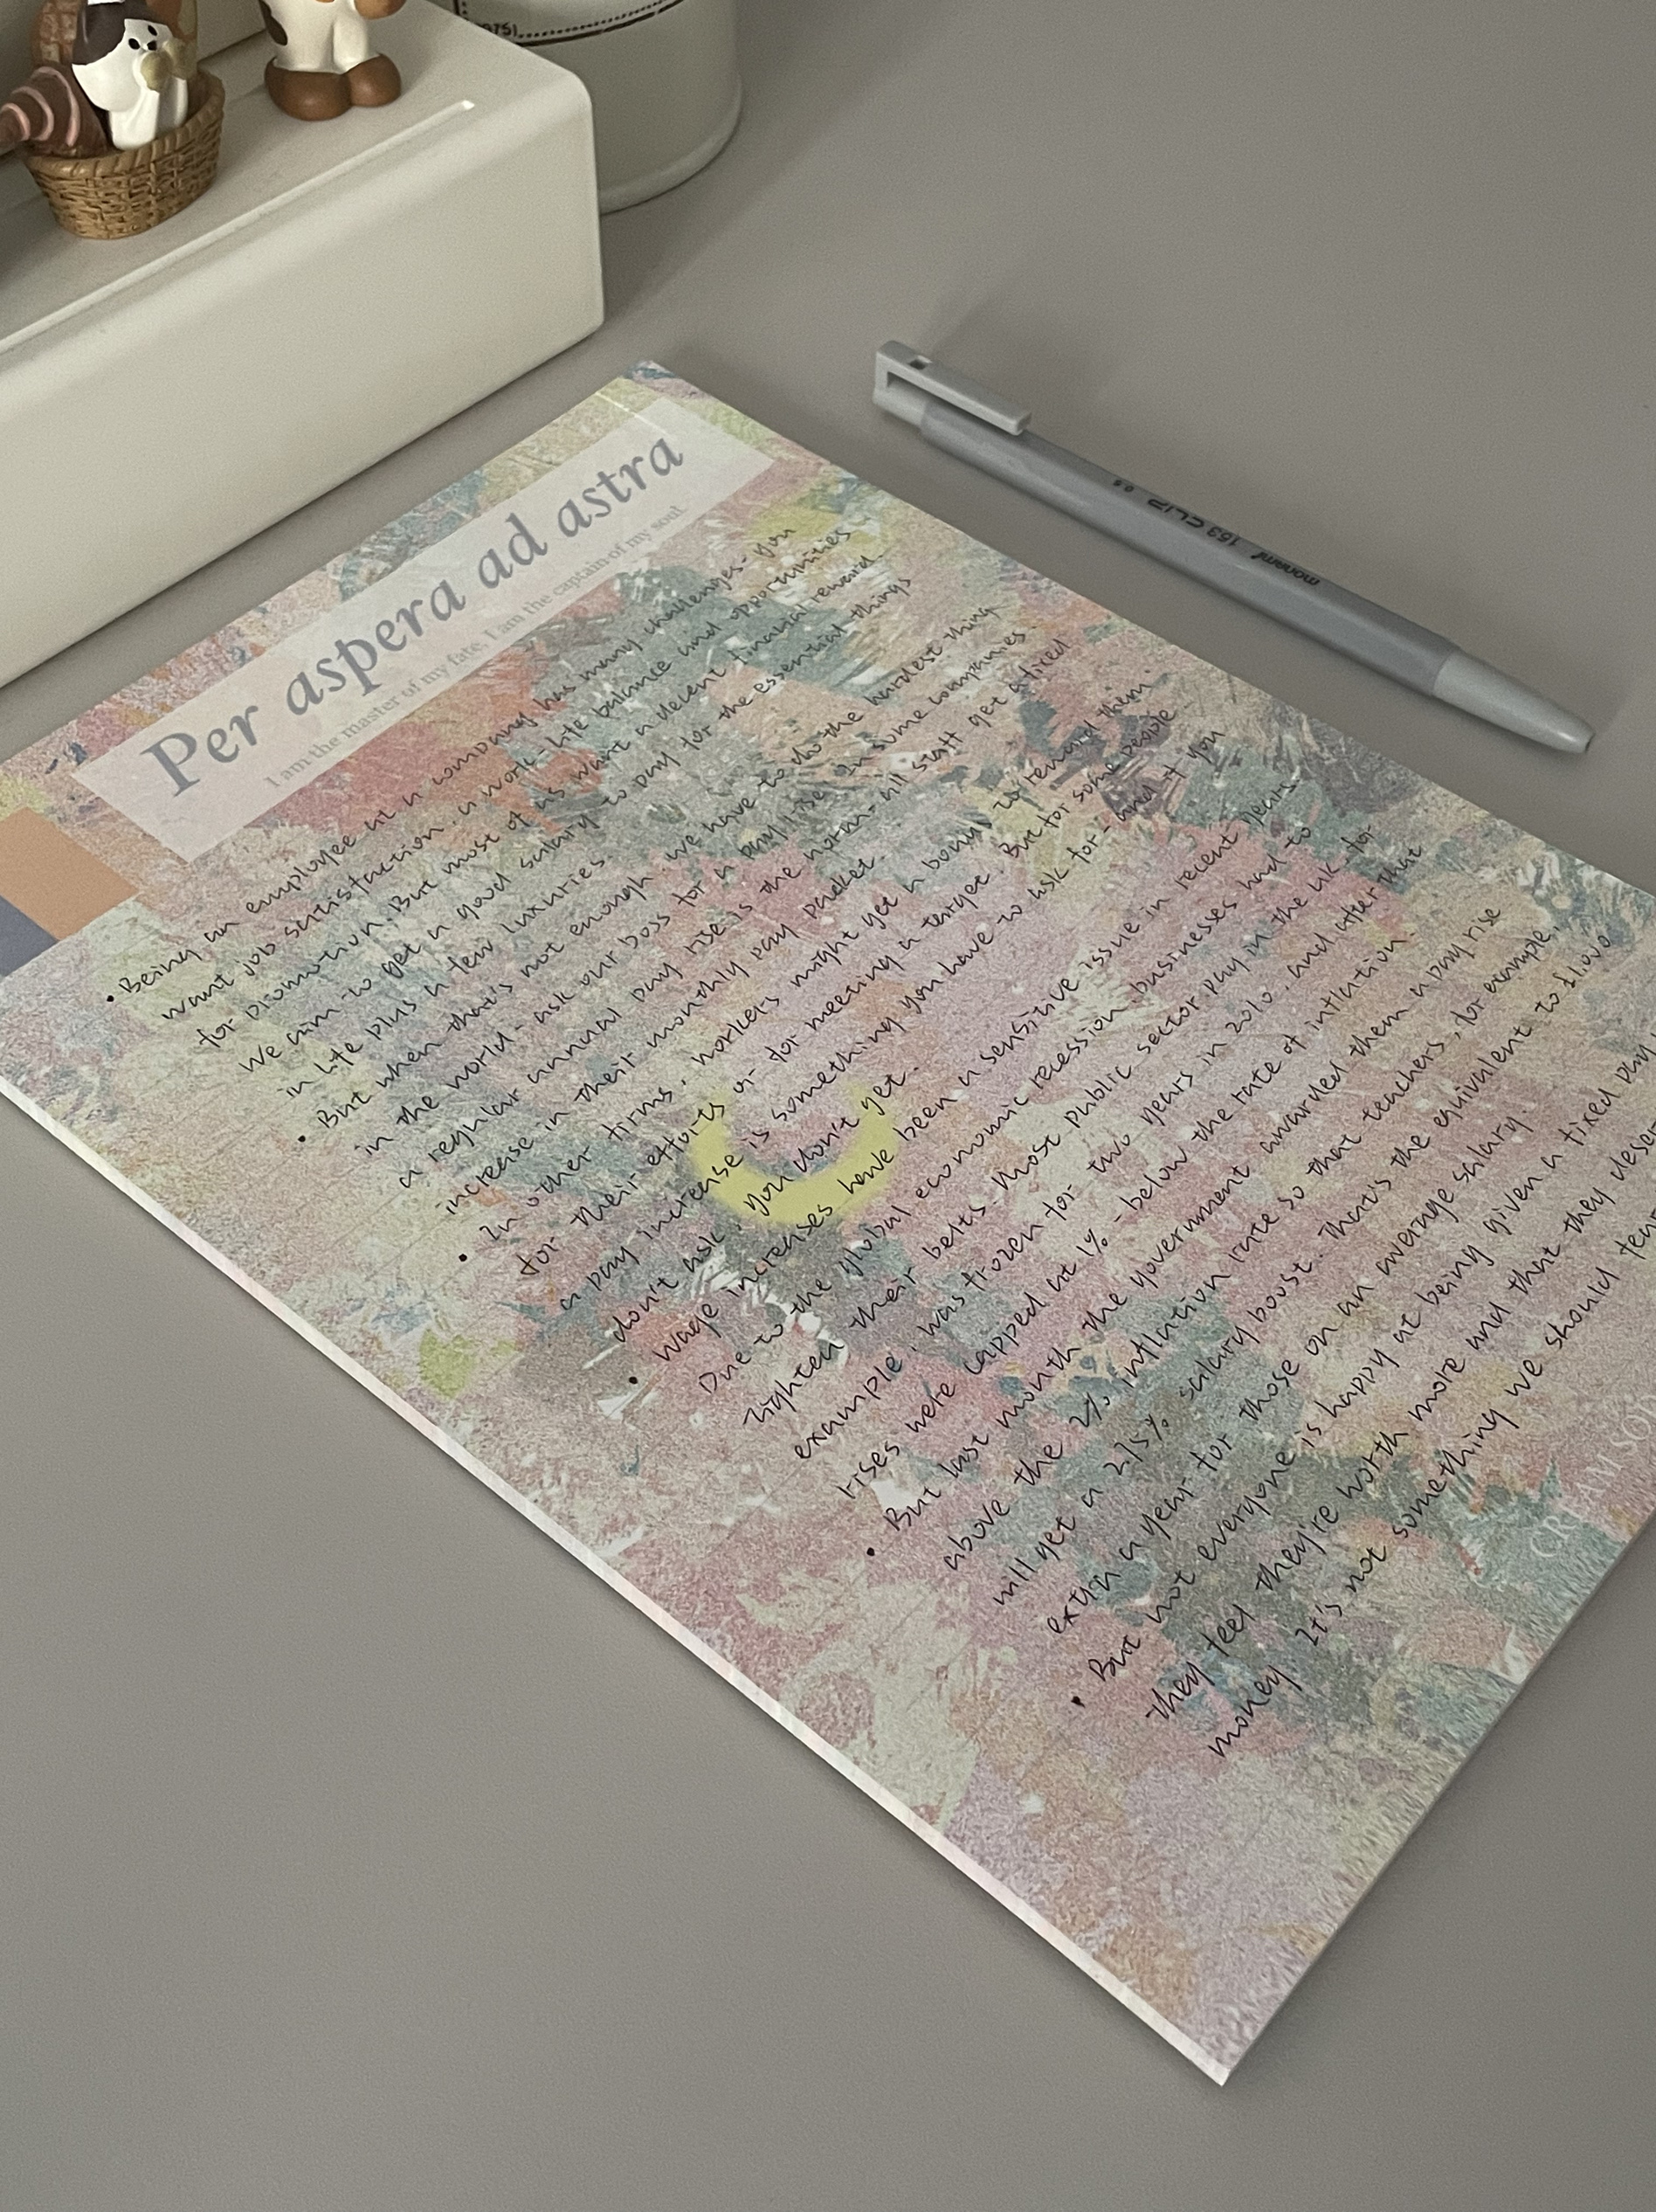 Per aspera ad astra
I am the master of my fate, I am the captain of my soul.
• Being an employee at a company has many challenges. You
want job satisfaction, a work-life balance and opportunities
for promotion. But most of us want a decent financial reward.
We aim to get a good salary to pay for the essential things
in life plus a few luxuries
• But when that's not enough, we have to do the hardest thing
in the world - ask our boss for a pay rise. In some companies
a regular annual pay rise is the norm - all staff get a fixed
increase in their monthly pay packet.
• In other firms, workers might get a bonus to reward them
for their efforts or for meeting a target. But for some people
a pay increase is something you have to ask for - and if you
don't ask, you don't get.
• Wage increases have been a sensitive issue in recent years.
Due to the global economic recession, businesses had to
tighten their belts. Most public sector pay in the UK, for
example, was frozen for two years in 2010, and after that
rises were capped at 1% - below the rate of inflation.
• But last month the government awarded them a pay rise
above the 2% inflation rate so that teachers, for example,
will get a 2.75% salary boost. That's the equivalent to £1,000
extra a year for those on an average salary.
• But not everyone is happy at being given a fixed pay
they feel they're worth more and that they
money. It's not something we should
CREAM SODA
monami 153 CLIP 0.5